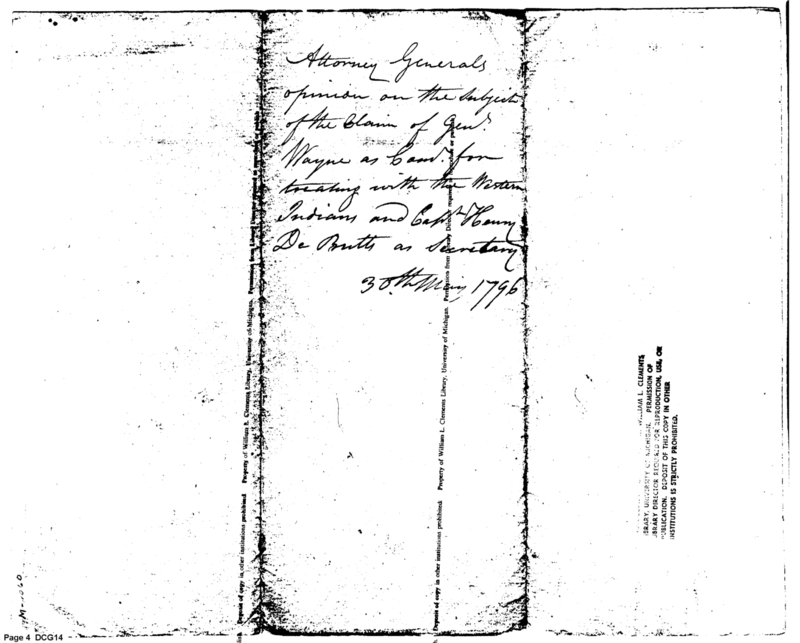 Attorney Generals
opinion on the Subject
of the Claim of Genl.
Wayne as Comr. for
treating with the Western
Indians and Capt. Henry
De Butts as Secretary
30th May 1796
Deposit of copy in other institutions prohibited. Property of William L. Clements Library, University of Michigan.
Deposit of copy in other institutions prohibited. Property of William L. Clements Library, University of Michigan.
WILLIAM L. CLEMENTS
LIBRARY, UNIVERSITY OF MICHIGAN. PERMISSION OF
LIBRARY DIRECTOR REQUIRED FOR REPRODUCTION, USE, OR
PUBLICATION. DEPOSIT OF THIS COPY IN OTHER
INSTITUTIONS IS STRICTLY PROHIBITED.
Page 4 DCG14